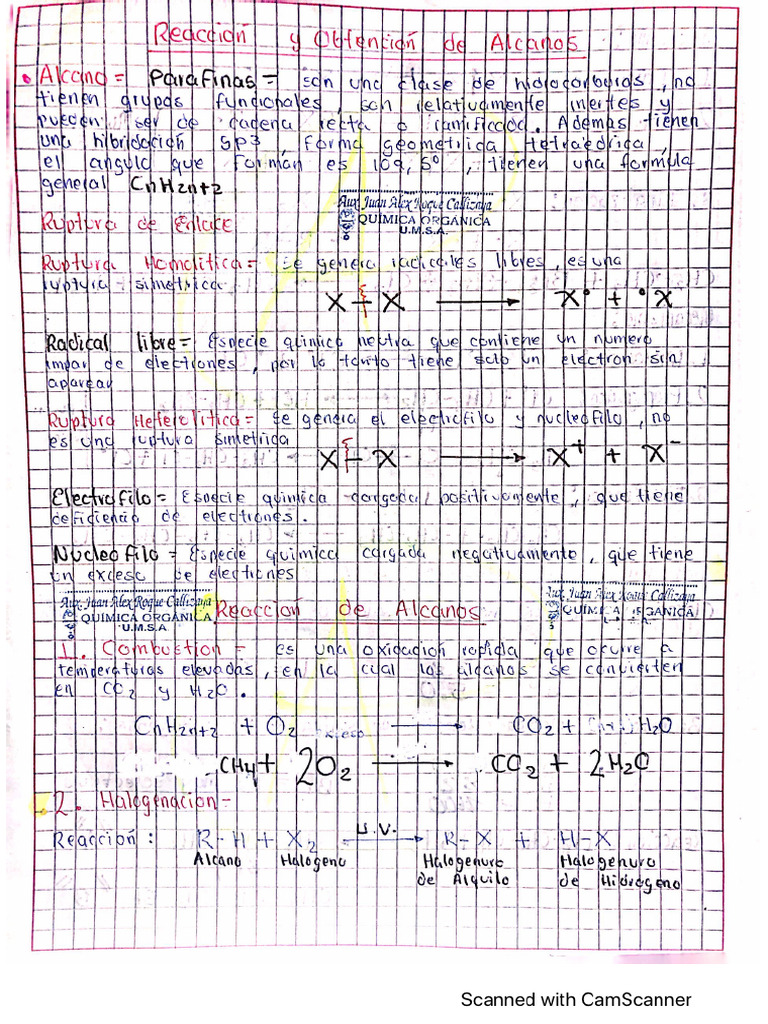 Reacción y Obtención de Alcanos
Alcano = Parafinas = son una clase de hidrocarburos, no
tienen grupos funcionales, son relativamente inertes y
pueden ser de cadena recta o ramificada. Ademas tienen
una hibridación sp3, forma geometrica tetraedrica,
el angulo que forman es 109,5°, tienen una formula
general CnH2n+2
Aux. Juan Alex Roque Callizaya
QUÍMICA ORGÁNICA
U.M.S.A.
Ruptura de Enlace
Ruptura Homolitica = se genera radicales libres, es una
ruptura simetrica
X + X → X° + °X
Radical libre = Especie quimica neutra que contiene un numero
impar de electrones, por lo tanto tiene solo un electron sin
aparear
Ruptura Heterolitica = se genera el electrofilo y nucleofilo, no
es una ruptura simetrica
X - X → X+ + X-
Electrofilo = Especie quimica cargada positivamente, que tiene
deficiencia de electrones.
Nucleofilo = Especie quimica cargada negativamente, que tiene
un exceso de electrones
Aux. Juan Alex Roque Callizaya
QUÍMICA ORGÁNICA
U.M.S.A.
Reaccion de Alcanos
Aux. Juan Alex Roque Callizaya
1. Combustion = es una oxidación rapida que ocurre a
temperaturas elevadas, en la cual los alcanos se convierten
en CO2 y H2O.
CnH2n+2 + O2 → CO2 + H2O
CH4 + 2O2 → CO2 + 2H2O
2. Halogenacion-
Reacción: R-H + X2 U.V. → R-X + H-X
Alcano Halogeno Halogenuro Halogenuro
de Alquilo de Hidrogeno
Scanned with CamScanner